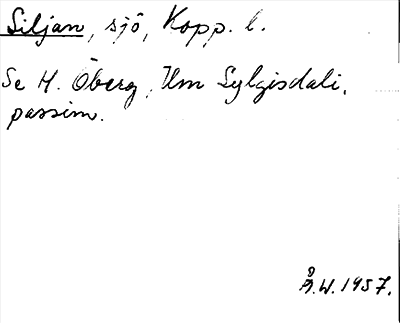 Siljan, sjö, Kopp. l.
Se H. Öberg, Um Sylgisdali,
passim.
Å.W. 1957.